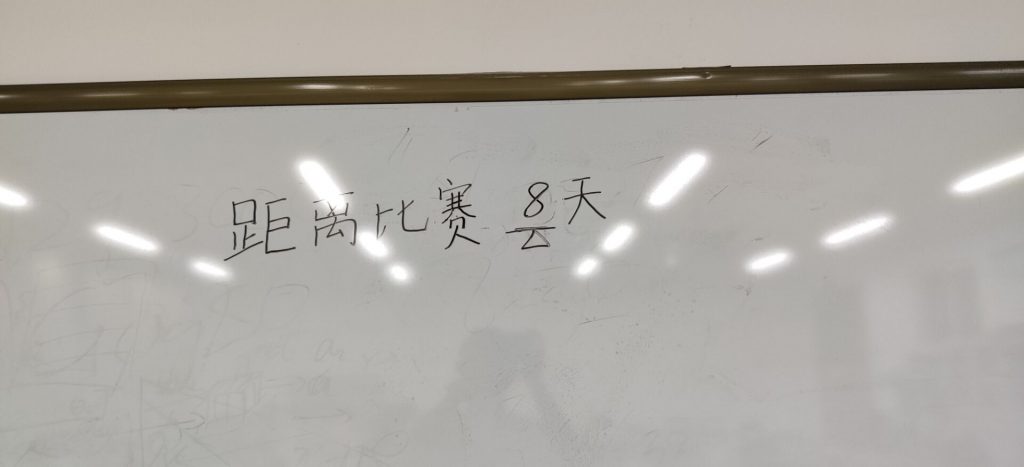 距离比赛 8天